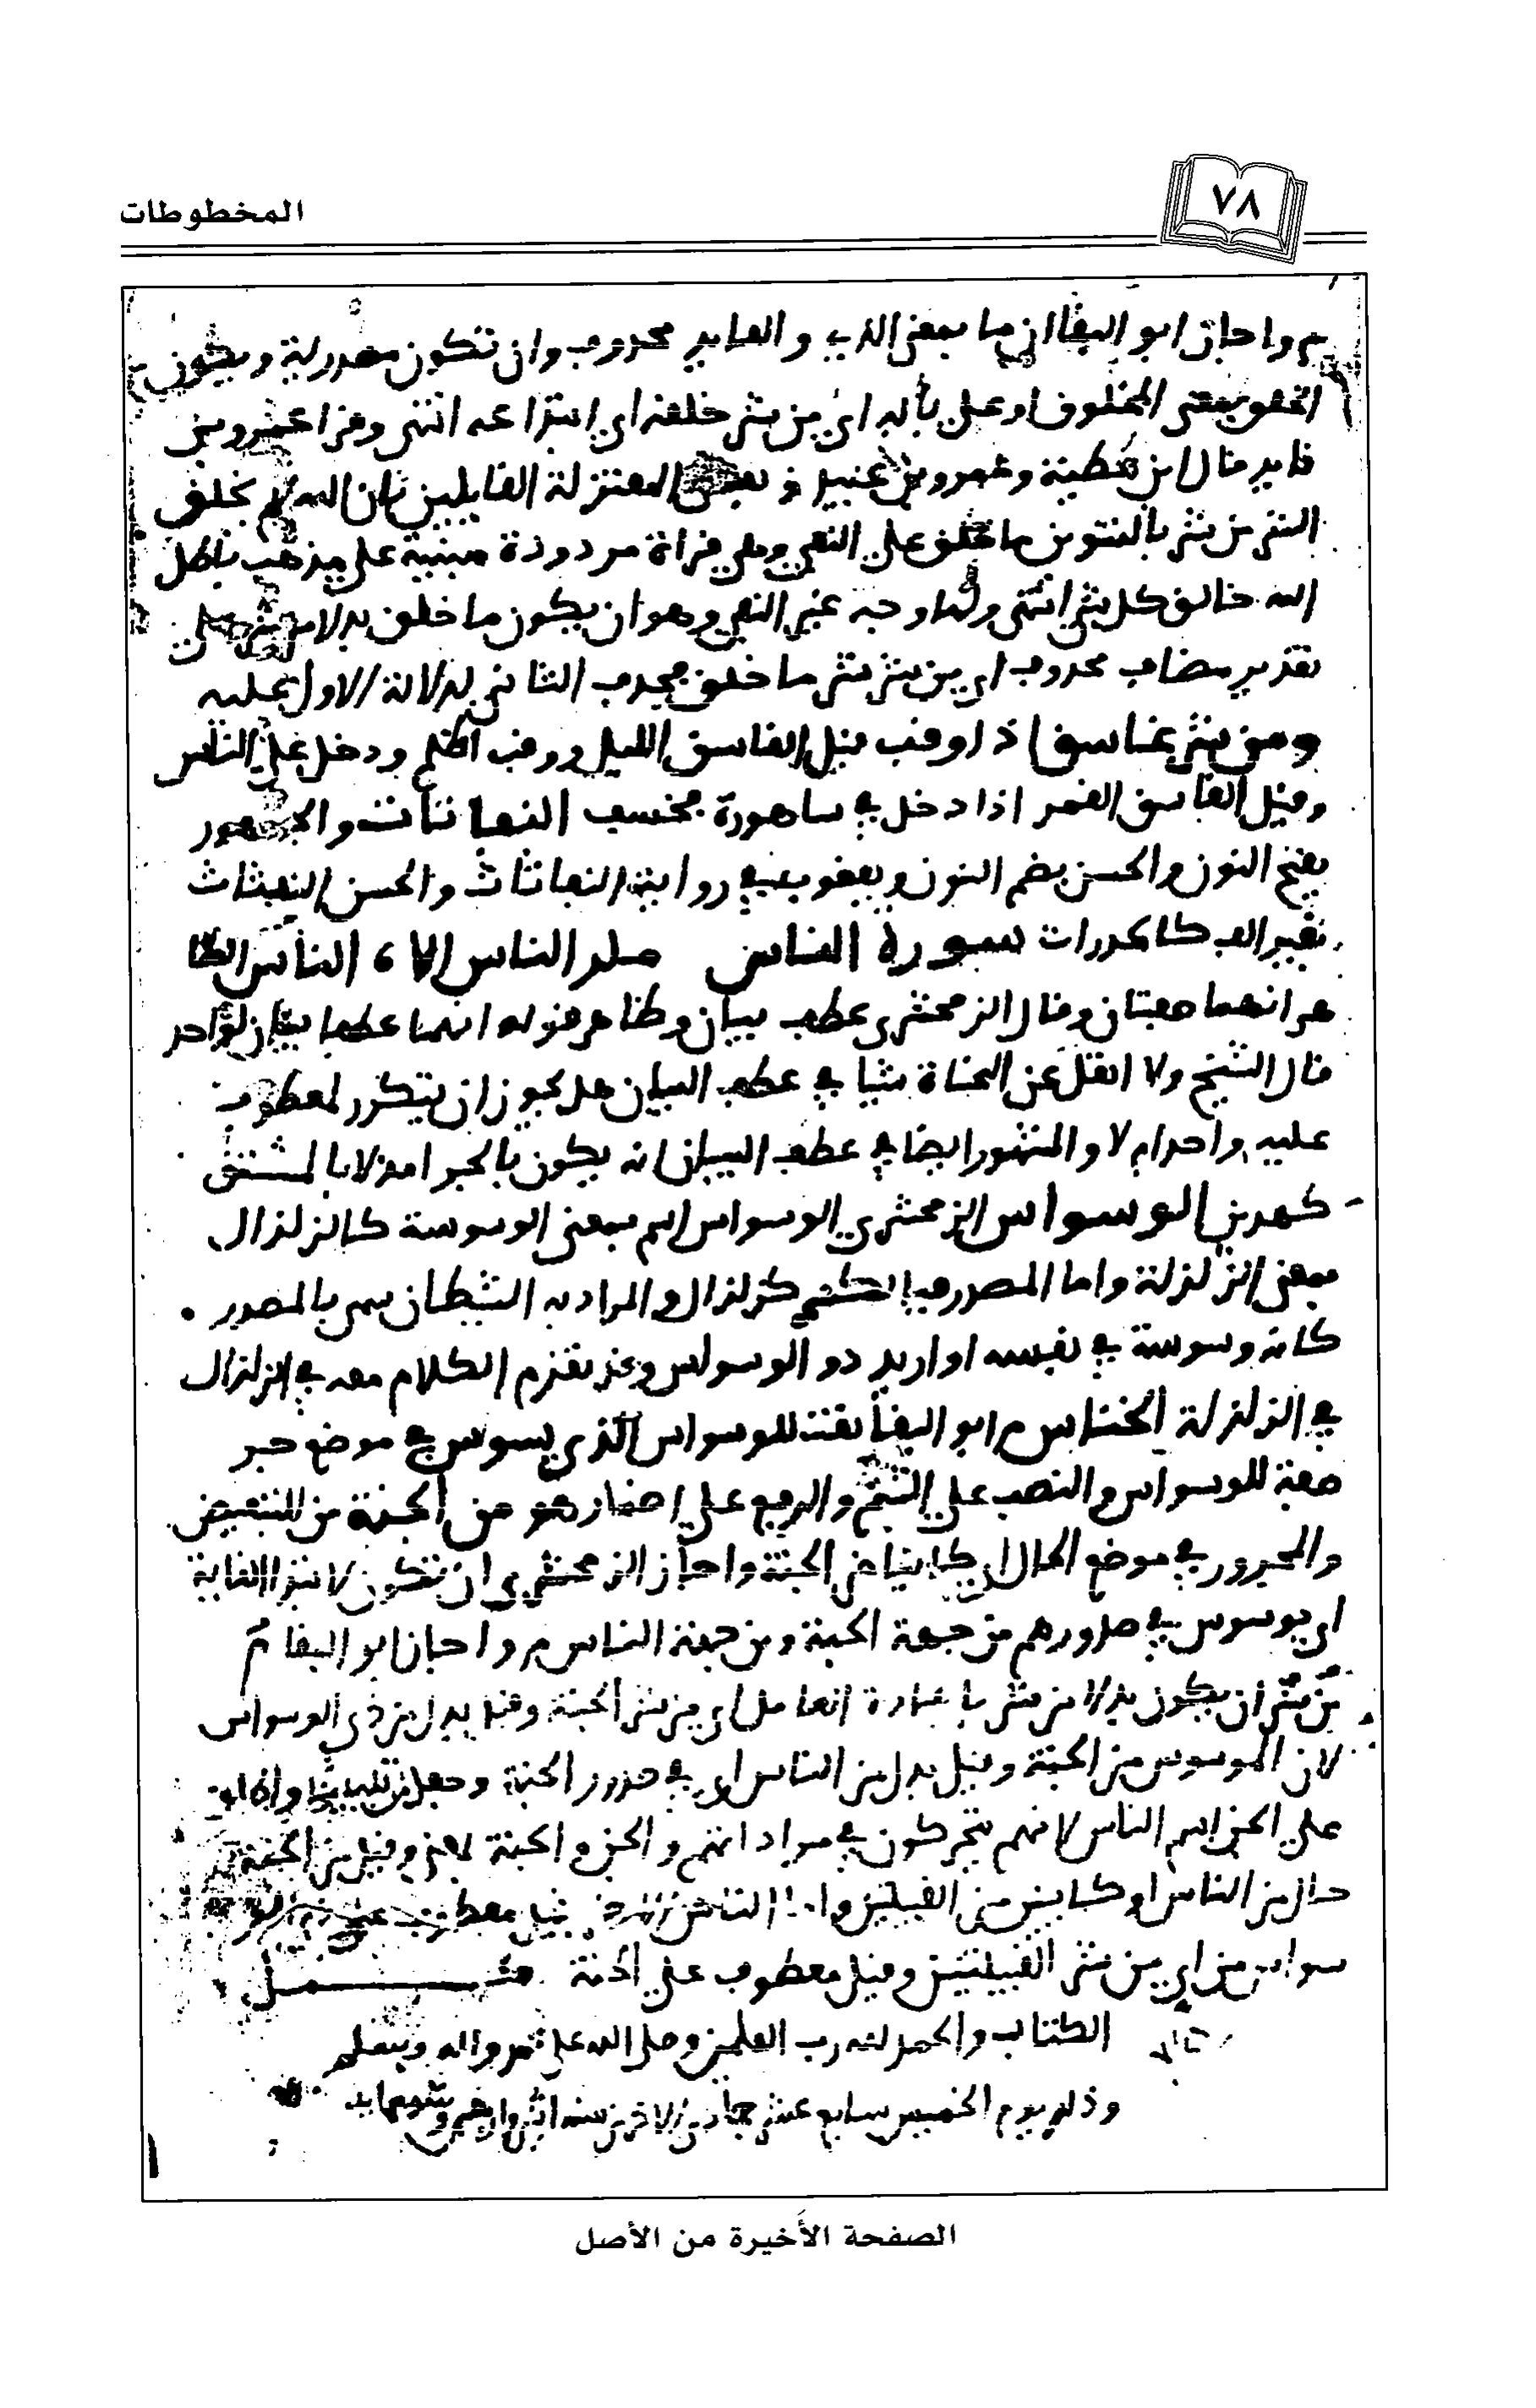 ٧٨
المخطوطات
م واجاز ابو البقا ان ما بمعنى الذي والعايد محذوف وان تكون مصدرية ويكون
الخلق بمعنى المخلوق او على بابه اي من شر خلقه اي ابتداعه انتهى وقرا عمرو بن
فايد قال ابن عطية وعمرو بن عبيد و بعض المعتزلة القايلين بان الله لم يخلق
الشر من شر بالتنوين ما خلق على النفي وهي قراة مردودة مبنية على مذهب باطل
الله خالق كل شي انتهى ولها وجه غير النفي وهو ان يكون ما خلق بدلا من شر على
تقدير مضاف محذوف اي من شر شر ما خلق فحذف الثاني لدلالة الاول عليه
ومن شر غاسق اذا وقب قيل الغاسق الليل ووقب اظلم ودخل على الناس
وقيل الغاسق القمر اذا دخل في ساهورة فخسف النفاثات والجمهور
بفتح النون والحسن بضم النون ويعقوب في رواية النافثات والحسن النفثات
بغير الف كالحدرات سورة الناس ملك الناس الاه الناس الظا
هر انهما صفتان وقال الزمخشري عطف بيان وظاهر قوله انهما عطفا بيان لواحد
قال الشيخ ولا انقل عن النحاة شيا في عطف البيان هل يجوز ان يتكرر لمعطوف
عليه واحد ام لا والمشهور ايضا في عطف البيان انه يكون بالجوامد لا بالمشتق
كهذين الوسواس الزمخشري الوسواس اسم بمعنى الوسوسة كالزلزال
بمعنى الزلزلة واما المصدر فبالكسر كزلزال والمراد به الشيطان سمي بالمصدر
كانه وسوسة في نفسه او اريد ذو الوسواس وقد تقدم الكلام معه في الزلزال
في الزلزلة الخناس م ابو البقا نعت للوسواس الذي يوسوس في موضع جر
صفة للوسواس والنصب على الشتم والرفع على اضمار هو من الجنة من للتبعيض
والمجرور في موضع الحال اي كاينا من الجنة واجاز الزمخشري ان تكون لابتدا الغاية
اي يوسوس في صدورهم من جهة الجنة ومن جهة الناس م واجاز ابو البقا في
من شر ان يكون بدلا من شر باعادة العامل اي من شر الجنة وقيل بدل من ذي الوسواس
لان الموسوس من الجنة وقيل بدل من الناس اي في صدور الجنة وجعل من تبيينا واطلق
على الجن اسم الناس لانهم يتحركون في مرادانهم والجن والجنة بمعنى وقيل من الجنة
حال من الناس اي كاينين من القبيلين واما الناس الاخير فقيل معطوف على ذي الو
سواس اي من شر القبيلتين وقيل معطوف على الجنة كمـــــــل
الكتاب والحمد لله رب العلمين وصلى الله على محمد واله وسلم
وذلك يوم الخميس سابع عشر جمادى الاخرى سنه اثنى واربعين وسبعمايه
الصفحة الأخيرة من الأصل